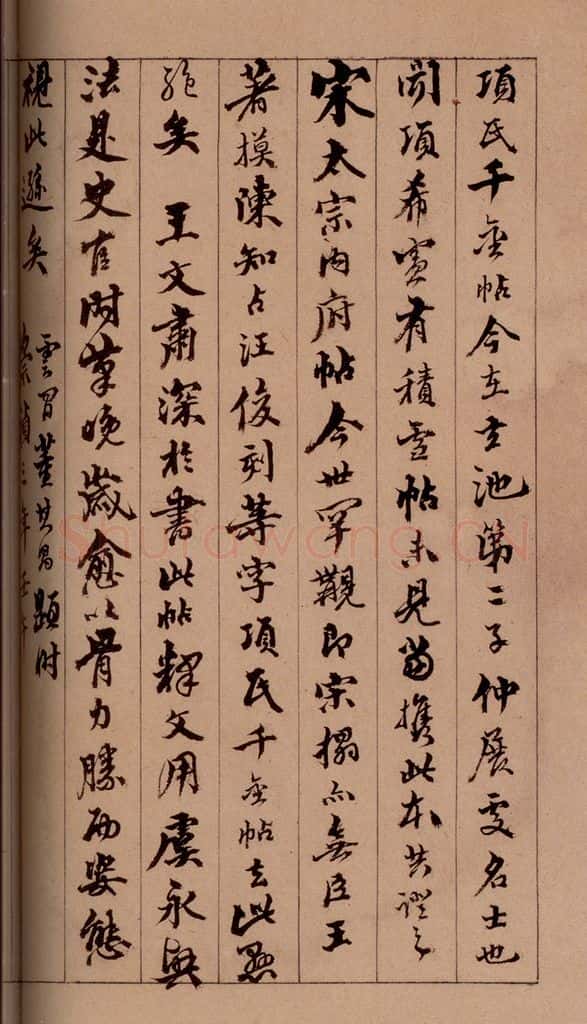 項氏千金帖今在玄池第二子仲展處名士也
聞項希憲有積雪帖未見當攜此本共證之
宋太宗內府帖今世罕覯即宋搨亦無臣王
著摸陳知占汪俊刻等字項氏千金帖去此懸
絕矣 王文肅深於書此帖釋文用虞永興
法是史官時草晚歲愈以骨力勝而姿態
視此遜矣
雲間董其昌題時
崇禎三年